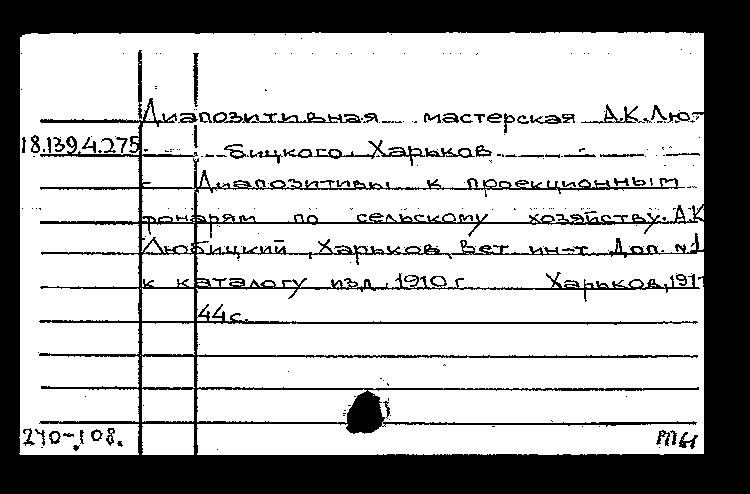 Диапозитивная мастерская А.К. Лют-
18.139.4.275. бицкого. Харьков
- Диапозитивы к проекционным
фонарям по сельскому хозяйству. А.К
Любицкий, Харьков, Вет. ин-т. Доп. №1
к каталогу изд. 1910 г. Харьков, 1911
44 с.
240-108.